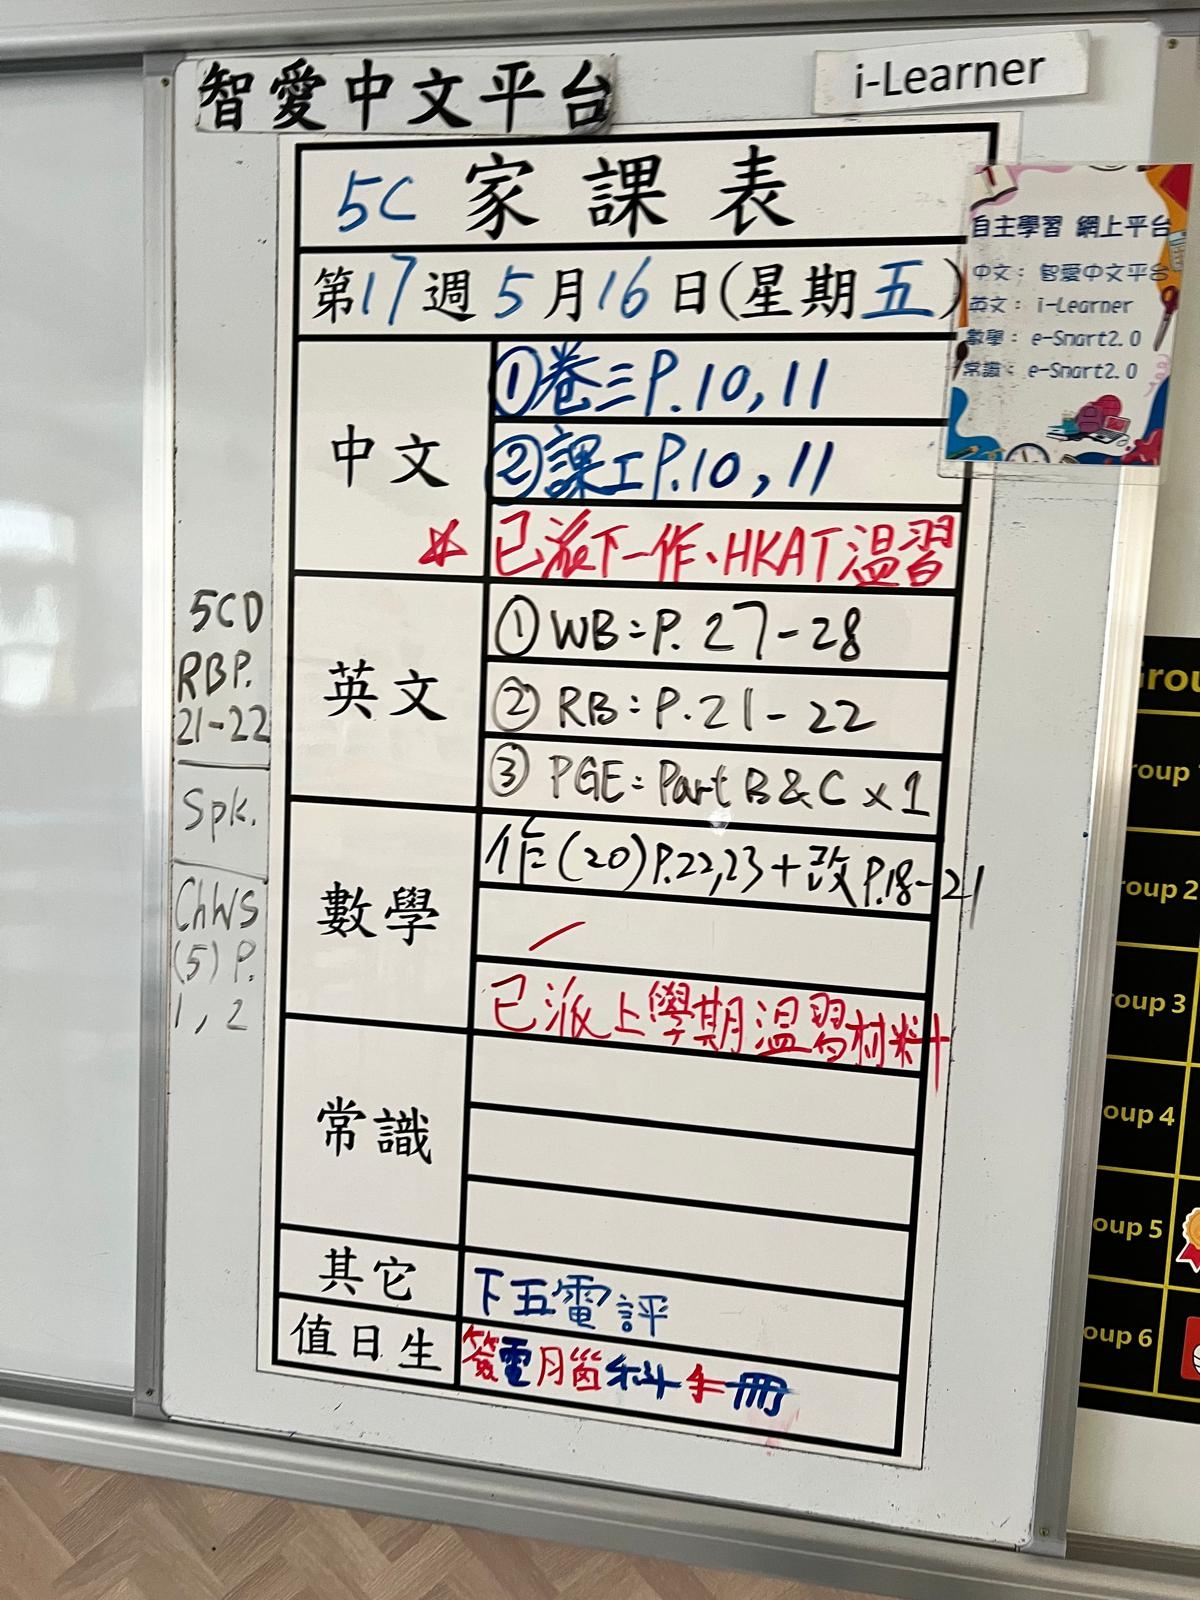 智愛中文平台
i-Learner
5C 家課表
第17週5月16日(星期五)
自主學習 網上平台
中文：智愛中文平台
英文：i-Learner
數學：e-Smart2.0
常識：e-Smart2.0
中文
①卷三P.10,11
②課工P.10,11
☆已派下一作、HKAT溫習
英文
①WB:P.27-28
②RB:P.21-22
③PGE:Part B&C x1
數學
作(20)P.22,23+改P.18-21
已派上學期溫習材料
常識
其它
下五電評
值日生
簽電腦科手冊
5CD
RBP.
21-22
Spk.
ChWS
(5)P.
1,2
Group
Group 2
Group 3
Group 4
Group 5
Group 6